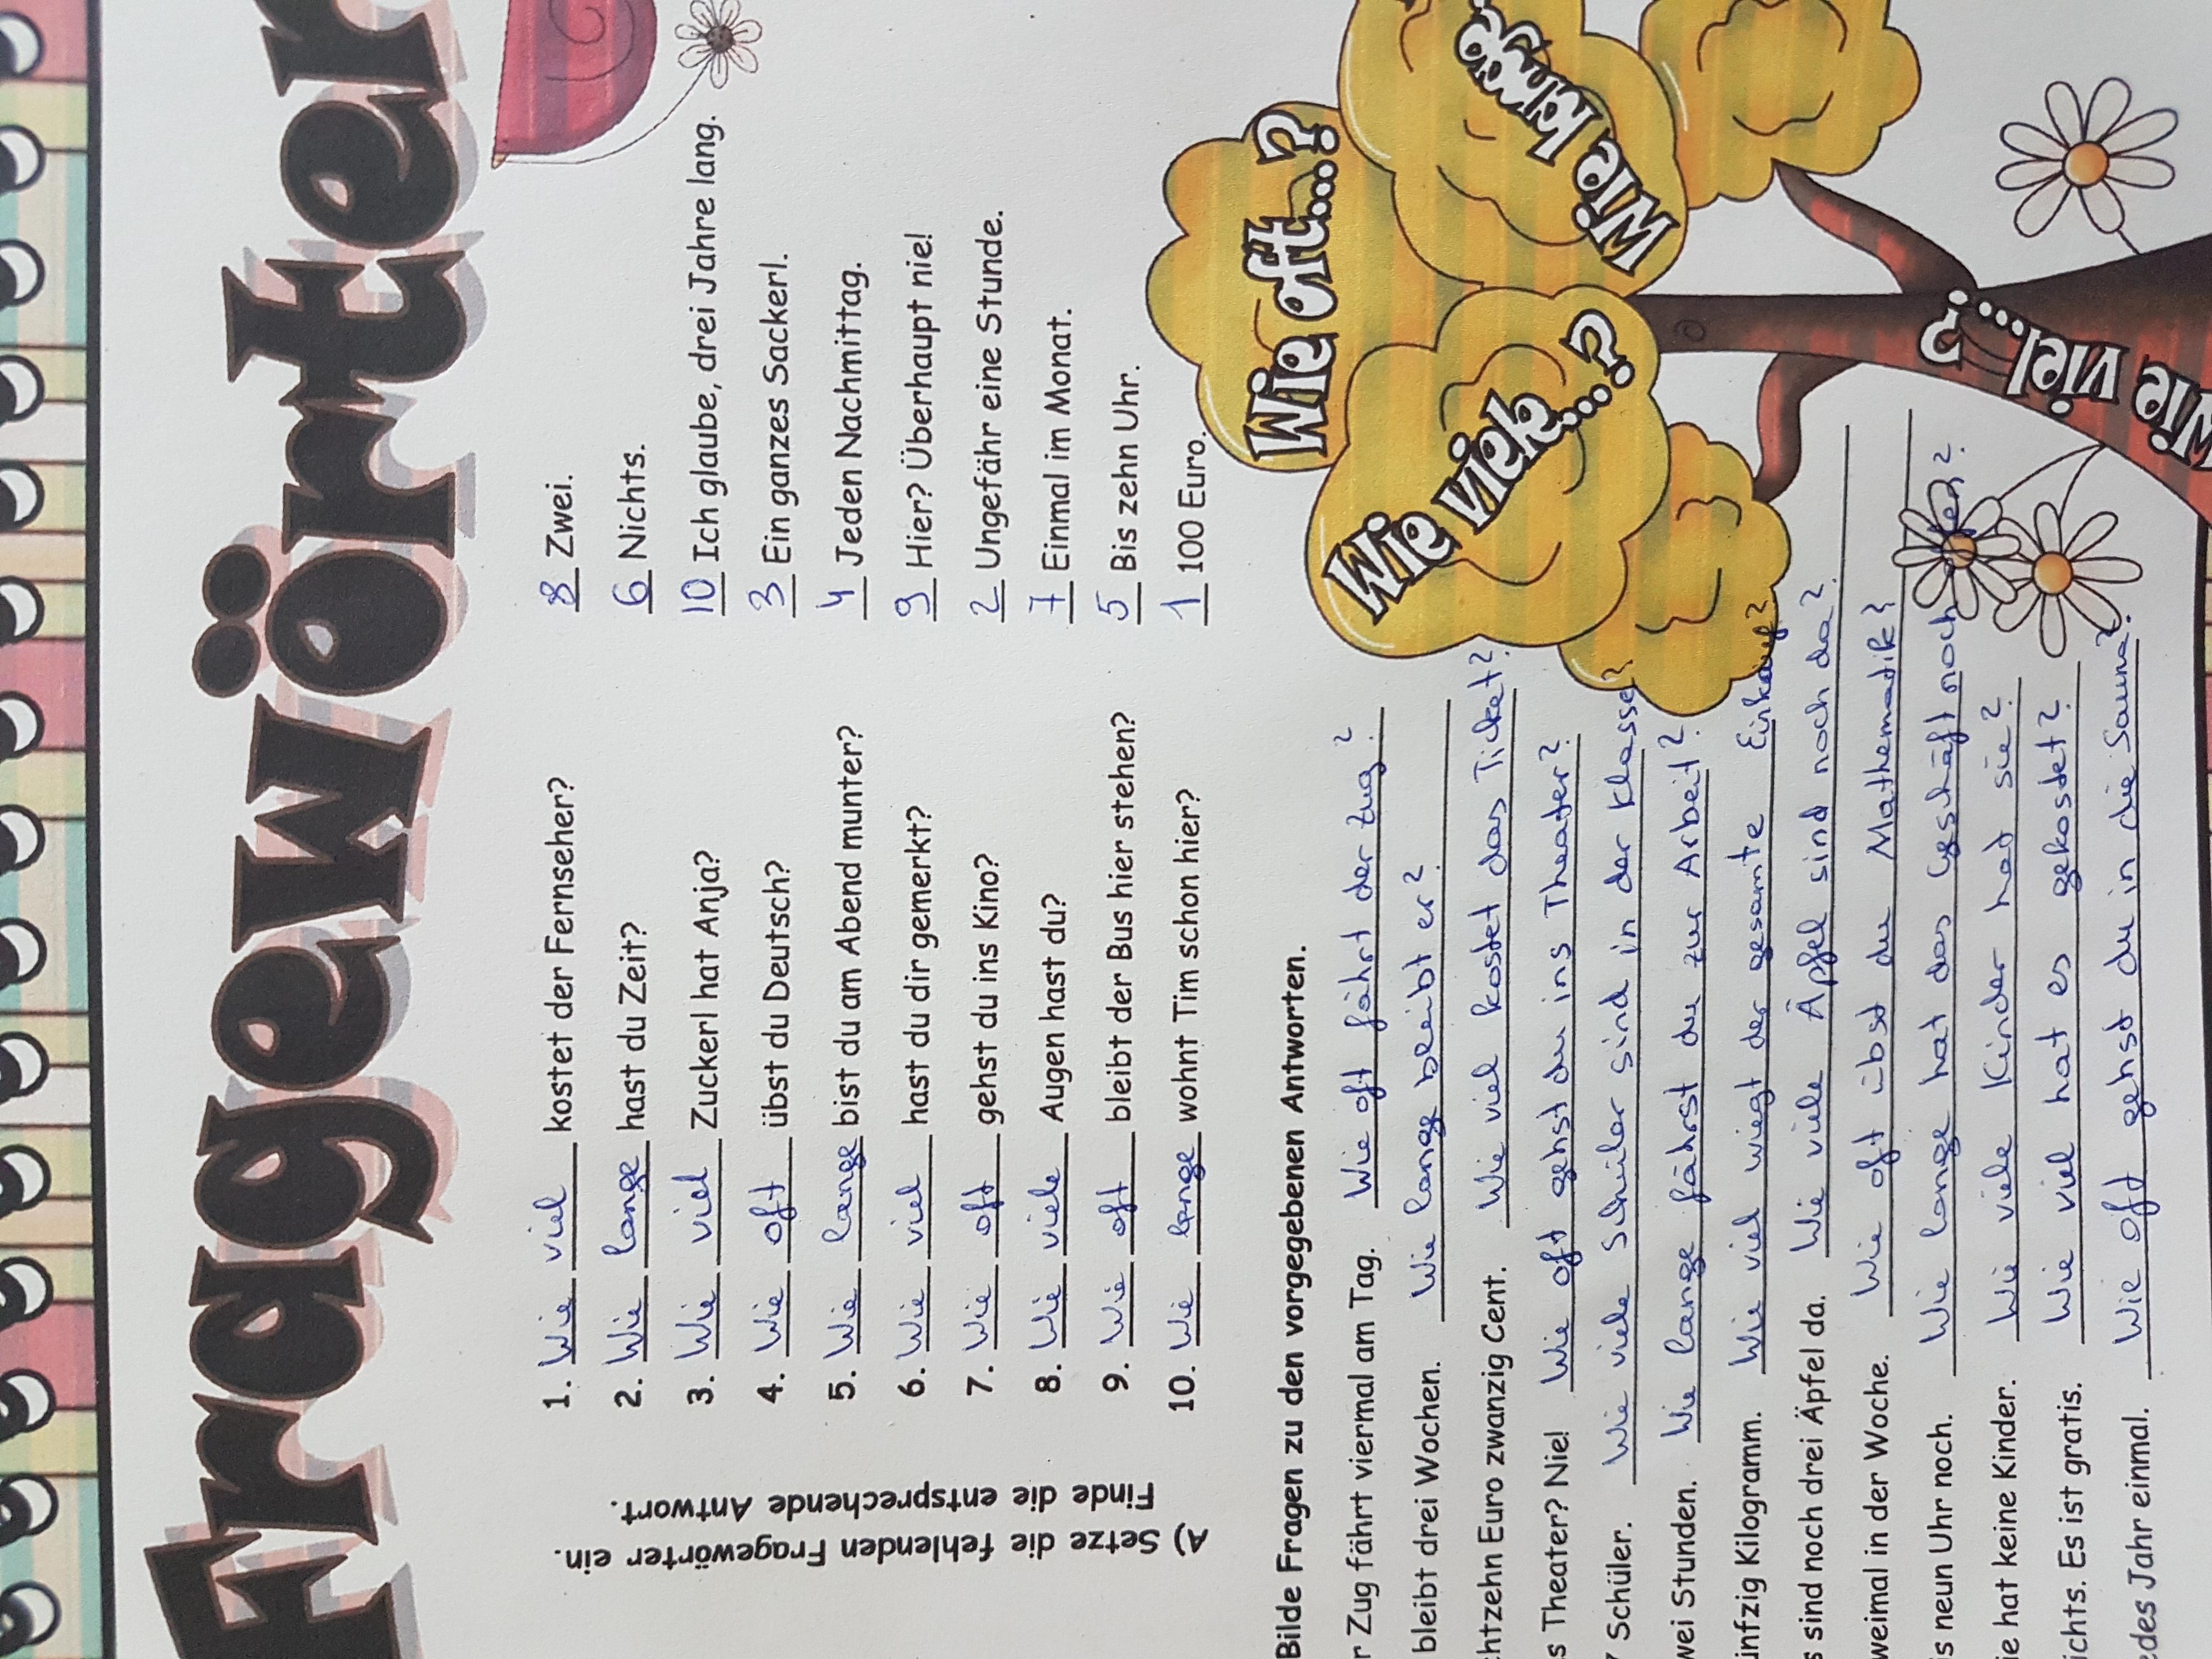 Fragewörter
A) Setze die fehlenden Fragewörter ein.
Finde die entsprechende Antwort.
1. Wie viel kostet der Fernseher?
2. Wie lange hast du Zeit?
3. Wie viel Zuckerl hat Anja?
4. Wie oft übst du Deutsch?
5. Wie lange bist du am Abend munter?
6. Wie viel hast du dir gemerkt?
7. Wie oft gehst du ins Kino?
8. Wie viele Augen hast du?
9. Wie oft bleibt der Bus hier stehen?
10. Wie lange wohnt Tim schon hier?
8 Zwei.
6 Nichts.
10 Ich glaube, drei Jahre lang.
3 Ein ganzes Sackerl.
4 Jeden Nachmittag.
9 Hier? Überhaupt nie!
2 Ungefähr eine Stunde.
7 Einmal im Monat.
5 Bis zehn Uhr.
1 100 Euro.
Bilde Fragen zu den vorgegebenen Antworten.
r Zug fährt viermal am Tag. Wie oft fährt der Zug?
bleibt drei Wochen. Wie lange bleibt er?
htzehn Euro zwanzig Cent. Wie viel kostet das Ticket?
s Theater? Nie! Wie oft gehst du ins Theater?
Schüler. Wie viele Schüler sind in der Klasse?
wei Stunden. Wie lange fährst du zur Arbeit?
ünfzig Kilogramm. Wie viel wiegt der gesamte Einkauf?
s sind noch drei Äpfel da. Wie viele Äpfel sind noch da?
weimal in der Woche. Wie oft übst du Mathematik?
is neun Uhr noch. Wie lange hat das Geschäft noch offen?
ie hat keine Kinder. Wie viele Kinder hat sie?
ichts. Es ist gratis. Wie viel hat es gekostet?
edes Jahr einmal. Wie oft gehst du in die Sauna?
Wie oft...?
Wie viele...?
Wie lang
Wie viel...?